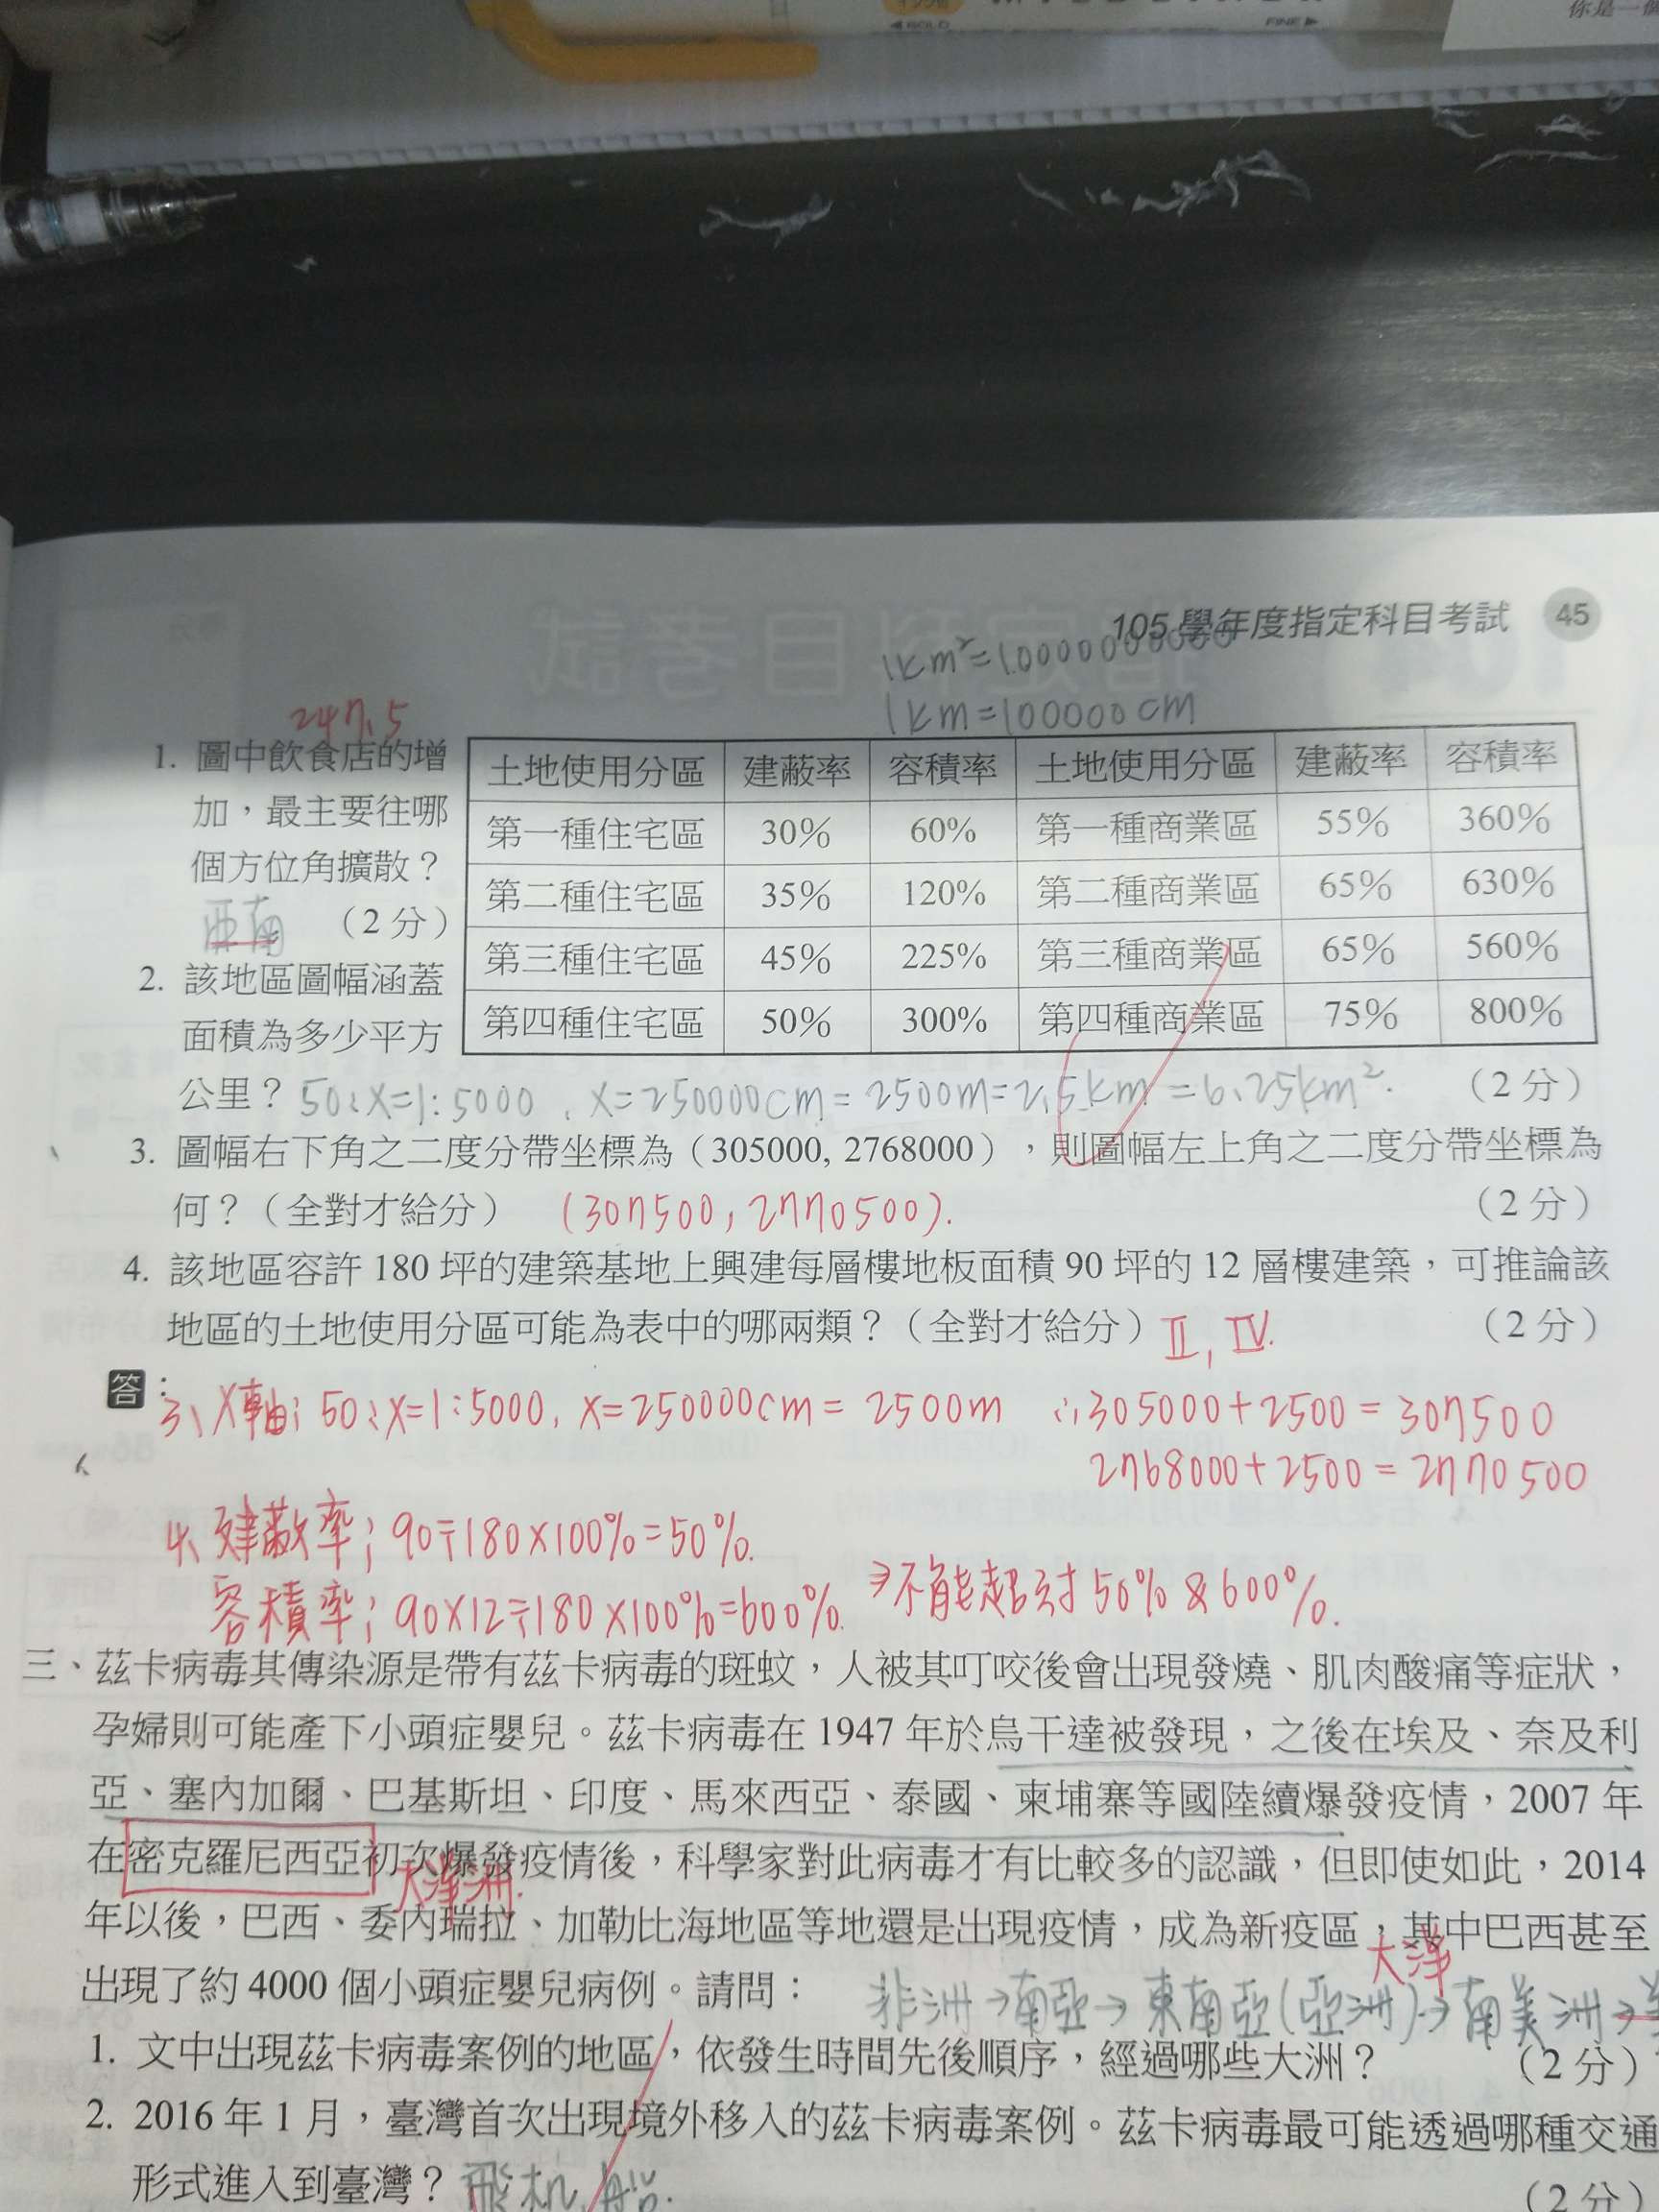 ◀BOLD FINE▶
你是一個
105 學年度指定科目考試 45
1km²=10000000000
1km=100000cm
247.5
1. 圖中飲食店的增
加，最主要往哪
個方位角擴散？
西南 （2 分）
2. 該地區圖幅涵蓋
面積為多少平方
土地使用分區 建蔽率 容積率 土地使用分區 建蔽率 容積率
第一種住宅區 30% 60% 第一種商業區 55% 360%
第二種住宅區 35% 120% 第二種商業區 65% 630%
第三種住宅區 45% 225% 第三種商業區 65% 560%
第四種住宅區 50% 300% 第四種商業區 75% 800%
公里？ 50:x=1:5000, x=250000cm=2500m=2.5km=6.25km². （2 分）
3. 圖幅右下角之二度分帶坐標為（305000, 2768000），則圖幅左上角之二度分帶坐標為
何？（全對才給分） (307500, 2770500). （2 分）
4. 該地區容許 180 坪的建築基地上興建每層樓地板面積 90 坪的 12 層樓建築，可推論該
地區的土地使用分區可能為表中的哪兩類？（全對才給分） II, IV. （2 分）
答：
3、X軸: 50:x=1:5000, x=250000cm=2500m ∴305000+2500=307500
2768000+2500=2770500
4、建蔽率: 90÷180×100%=50%.
容積率: 90×12÷180×100%=600%. ⇒不能超过50%&600%.
三、茲卡病毒其傳染源是帶有茲卡病毒的斑蚊，人被其叮咬後會出現發燒、肌肉酸痛等症狀，
孕婦則可能產下小頭症嬰兒。茲卡病毒在 1947 年於烏干達被發現，之後在埃及、奈及利
亞、塞內加爾、巴基斯坦、印度、馬來西亞、泰國、柬埔寨等國陸續爆發疫情，2007 年
在密克羅尼西亞初次爆發疫情後，科學家對此病毒才有比較多的認識，但即使如此，2014
大洋洲.
年以後，巴西、委內瑞拉、加勒比海地區等地還是出現疫情，成為新疫區，其中巴西甚至
大洋
出現了約 4000 個小頭症嬰兒病例。請問： 非洲→南亞→東南亞(亞洲)→南美洲→
1. 文中出現茲卡病毒案例的地區，依發生時間先後順序，經過哪些大洲？ （2 分）
2. 2016 年 1 月，臺灣首次出現境外移入的茲卡病毒案例。茲卡病毒最可能透過哪種交通
形式進入到臺灣？ 飛机, 船. （2 分）